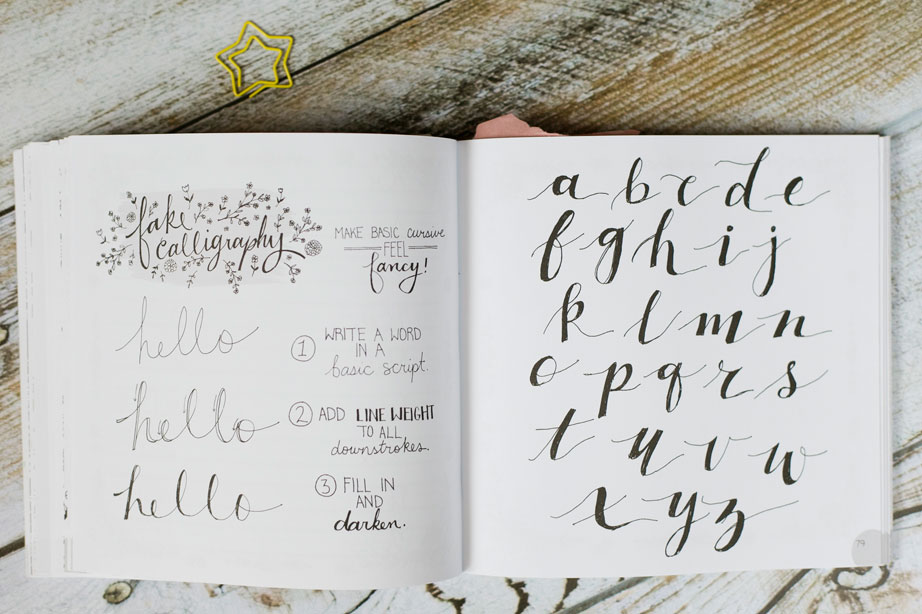 fake
calligraphy
MAKE BASIC cursive
FEEL
fancy!
hello
1 WRITE A WORD
IN A
basic script.
hello
2 ADD LINE WEIGHT
TO ALL
downstrokes.
hello
3 FILL IN
AND
darken.
a b c d e
f g h i j
k l m n
o p q r s
t u v w
x y z
79